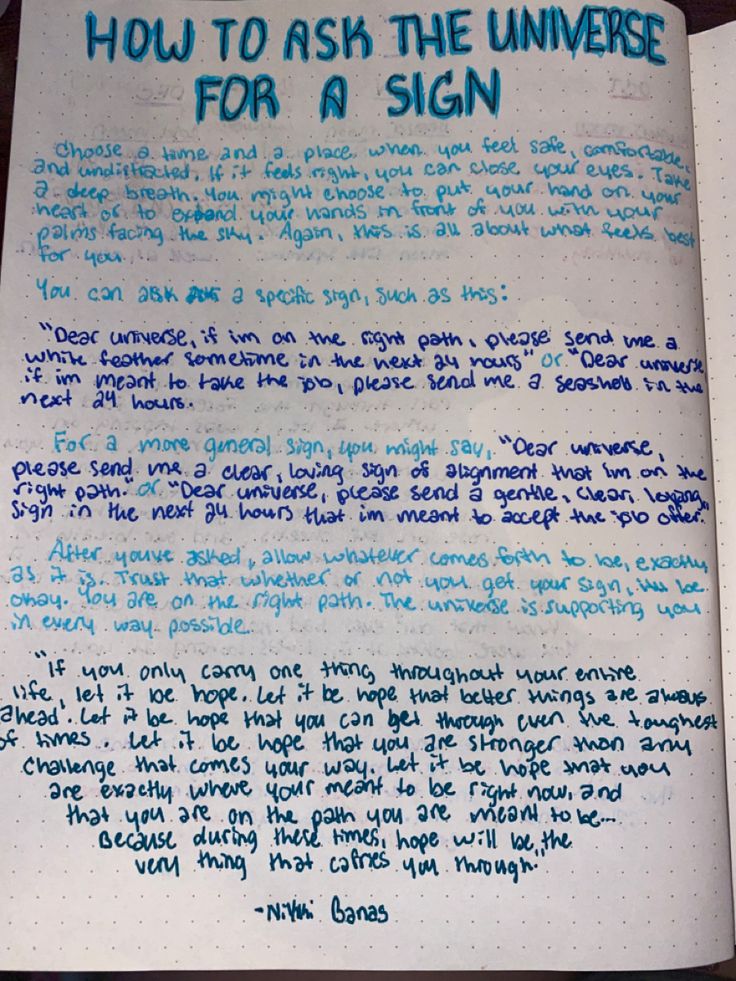 HOW TO ASK THE UNIVERSE
FOR A SIGN
Choose a time and a place when you feel safe, comfortable,
and undistracted. If it feels right, you can close your eyes. Take
a deep breath. You might choose to put your hand on your
heart or to expand your hands in front of you with your
palms facing the sky. Again, this is all about what feels best
for you.
You can ask a specific sign, such as this:
"Dear universe, if im on the right path, please send me a
white feather sometime in the next 24 hours" or "Dear universe
if im meant to take the job, please send me a seashell in the
next 24 hours.
For a more general sign, you might say, "Dear universe,
please send me a clear, loving sign of alignment that im on the
right path." or "Dear universe, please send a gentle, clear, loving
sign in the next 24 hours that im meant to accept the job offer."
After youve asked, allow whatever comes forth to be, exactly
as it is. Trust that whether or not you get your sign, itll be
okay. You are on the right path. The universe is supporting you
in every way possible.
"If you only carry one thing throughout your entire
life, let it be hope. Let it be hope that better things are always
ahead. Let it be hope that you can get through even the toughest
of times. Let it be hope that you are stronger than any
challenge that comes your way. Let it be hope that you
are exactly where your meant to be right now, and
that you are on the path you are meant to be...
Because during these times, hope will be the
very thing that carries you through."
-Nikki Banas